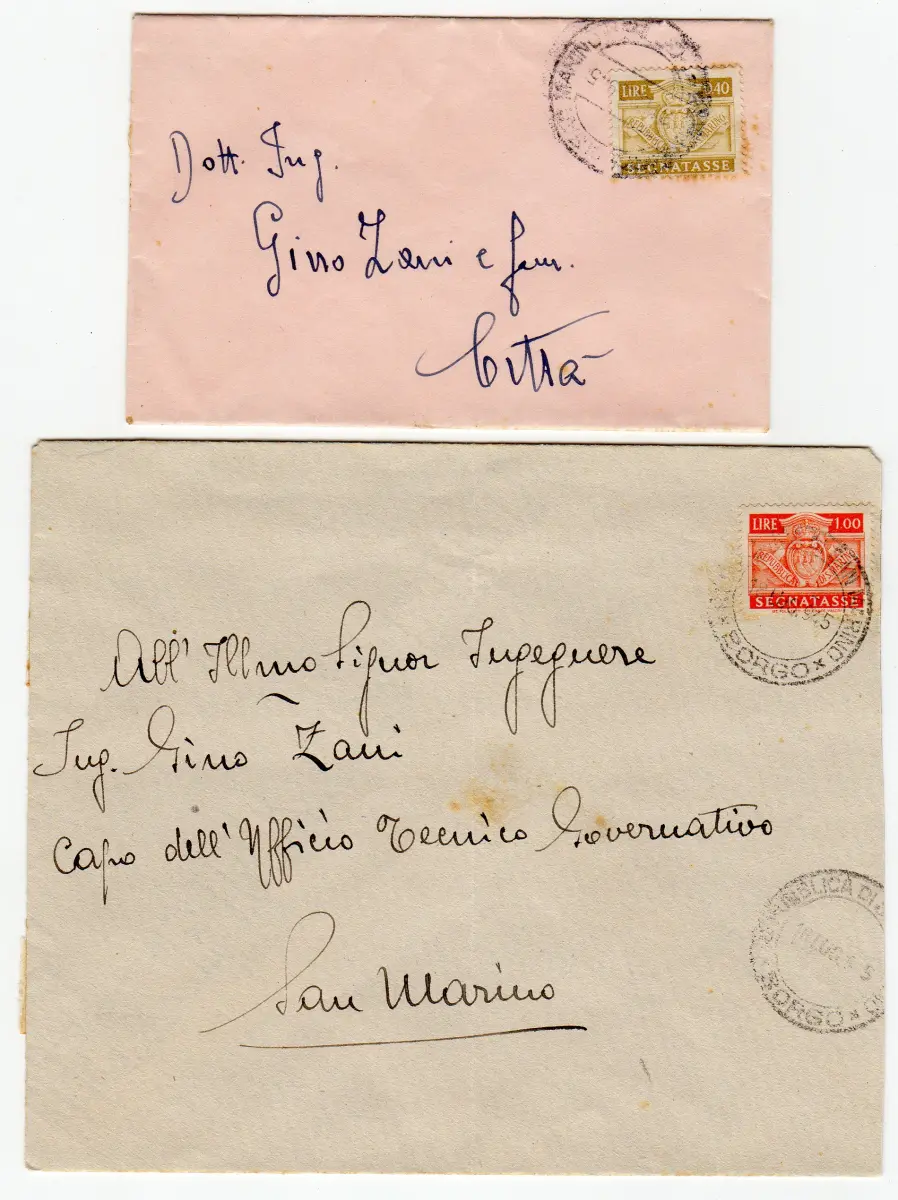 LIRE 0.40
REPUBBLICA MARINO
SEGNATASSE
Dott. Ing.
Gino Zani e fam.
Città
LIRE 1.00
REPUBBLICA DI S. MARINO
SEGNATASSE
MARINO
BORGO
All' Illmo Signor Ingegnere
Ing. Gino Zani
Capo dell' Ufficio Tecnico Governativo
San Marino
REPUBBLICA DI
LUG
BORGO